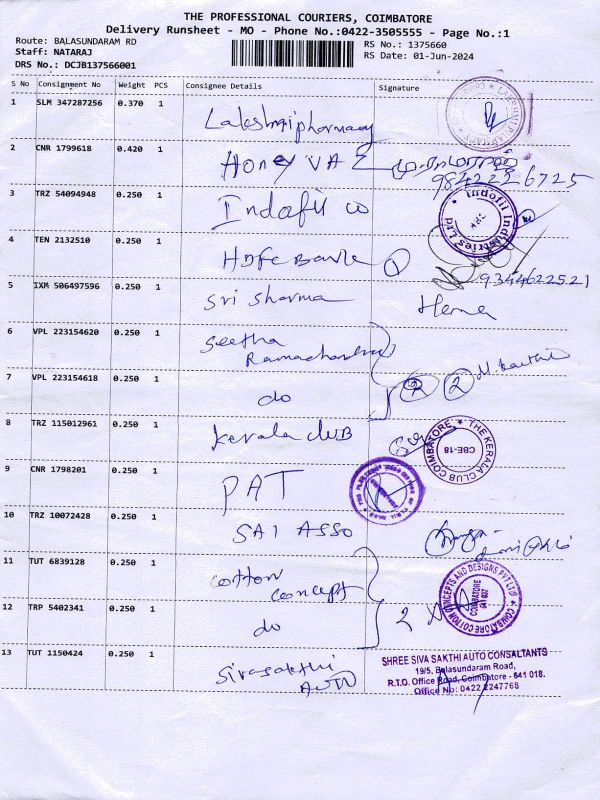 THE PROFESSIONAL COURIERS, COIMBATORE
Delivery Runsheet - MO - Phone No.:0422-3505555 - Page No.:1
Route: BALASUNDARAM RD
Staff: NATARAJ
DRS No.: DCJB137566001
RS No.: 1375660
RS Date: 01-Jun-2024
S No Consignment No Weight PCS Consignee Details Signature
1 SLM 347287256 0.370 1 Lakshmi pharmacy
2 CNR 1799618 0.420 1 Honey VAE
984222 6725
3 TRZ 54094948 0.250 1 Indofil co
Indofil Industries Ltd
4 TEN 2132510 0.250 1 HDFC Bank
9344622521
5 IXM 506497596 0.250 1 Sri Sharma Hema
6 VPL 223154620 0.250 1 Seetha
Ramachandra
7 VPL 223154618 0.250 1 do 2
8 TRZ 115012961 0.250 1 Kerala club
THE KERALA CLUB COIMBATORE
CBE-18
9 CNR 1798201 0.250 1 PAT
10 TRZ 10072428 0.250 1 SAI ASSO
11 TUT 6839128 0.250 1 Cotton
Concept
COIMBATORE COTTON CONCEPTS AND DESIGNS PVT LTD
COIMBATORE
641 027
12 TRP 5402341 0.250 1 do 2
13 TUT 1150424 0.250 1 Sivasakthi
AUTO
SHREE SIVA SAKTHI AUTO CONSALTANTS
19/5, Balasundaram Road,
R.T.O. Office Road, Coimbatore - 641 018.
Office No: 0422 2247768